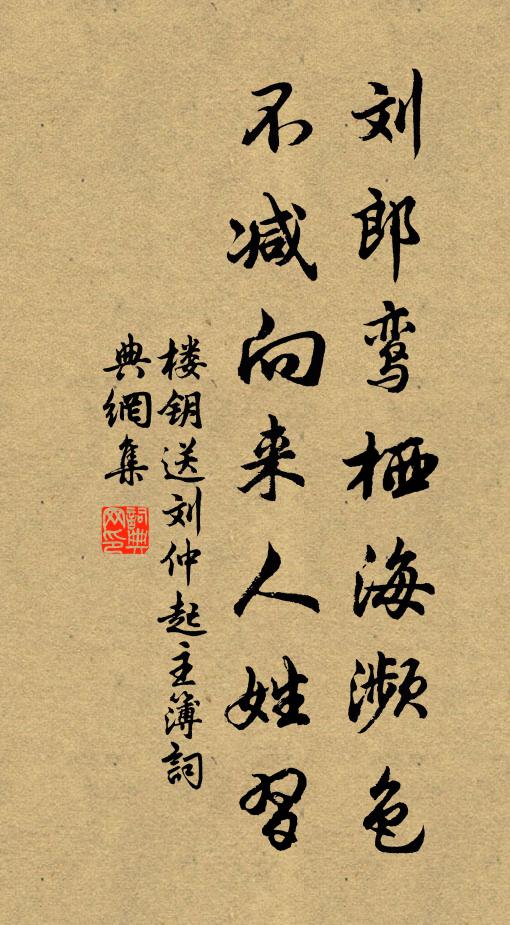 刘郎鸾栖海濒邑
不减向来人姓习
楼钥送刘仲起主簿詞
典網集
詞典
网印